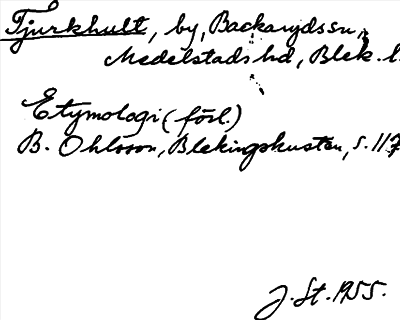 Tjurkhult, by, Backarydssn,
Medelstads hd, Blek. l.
Etymologi (försl.)
B. Ohlsson, Blekingskusten, s. 117
J. St. 1955.